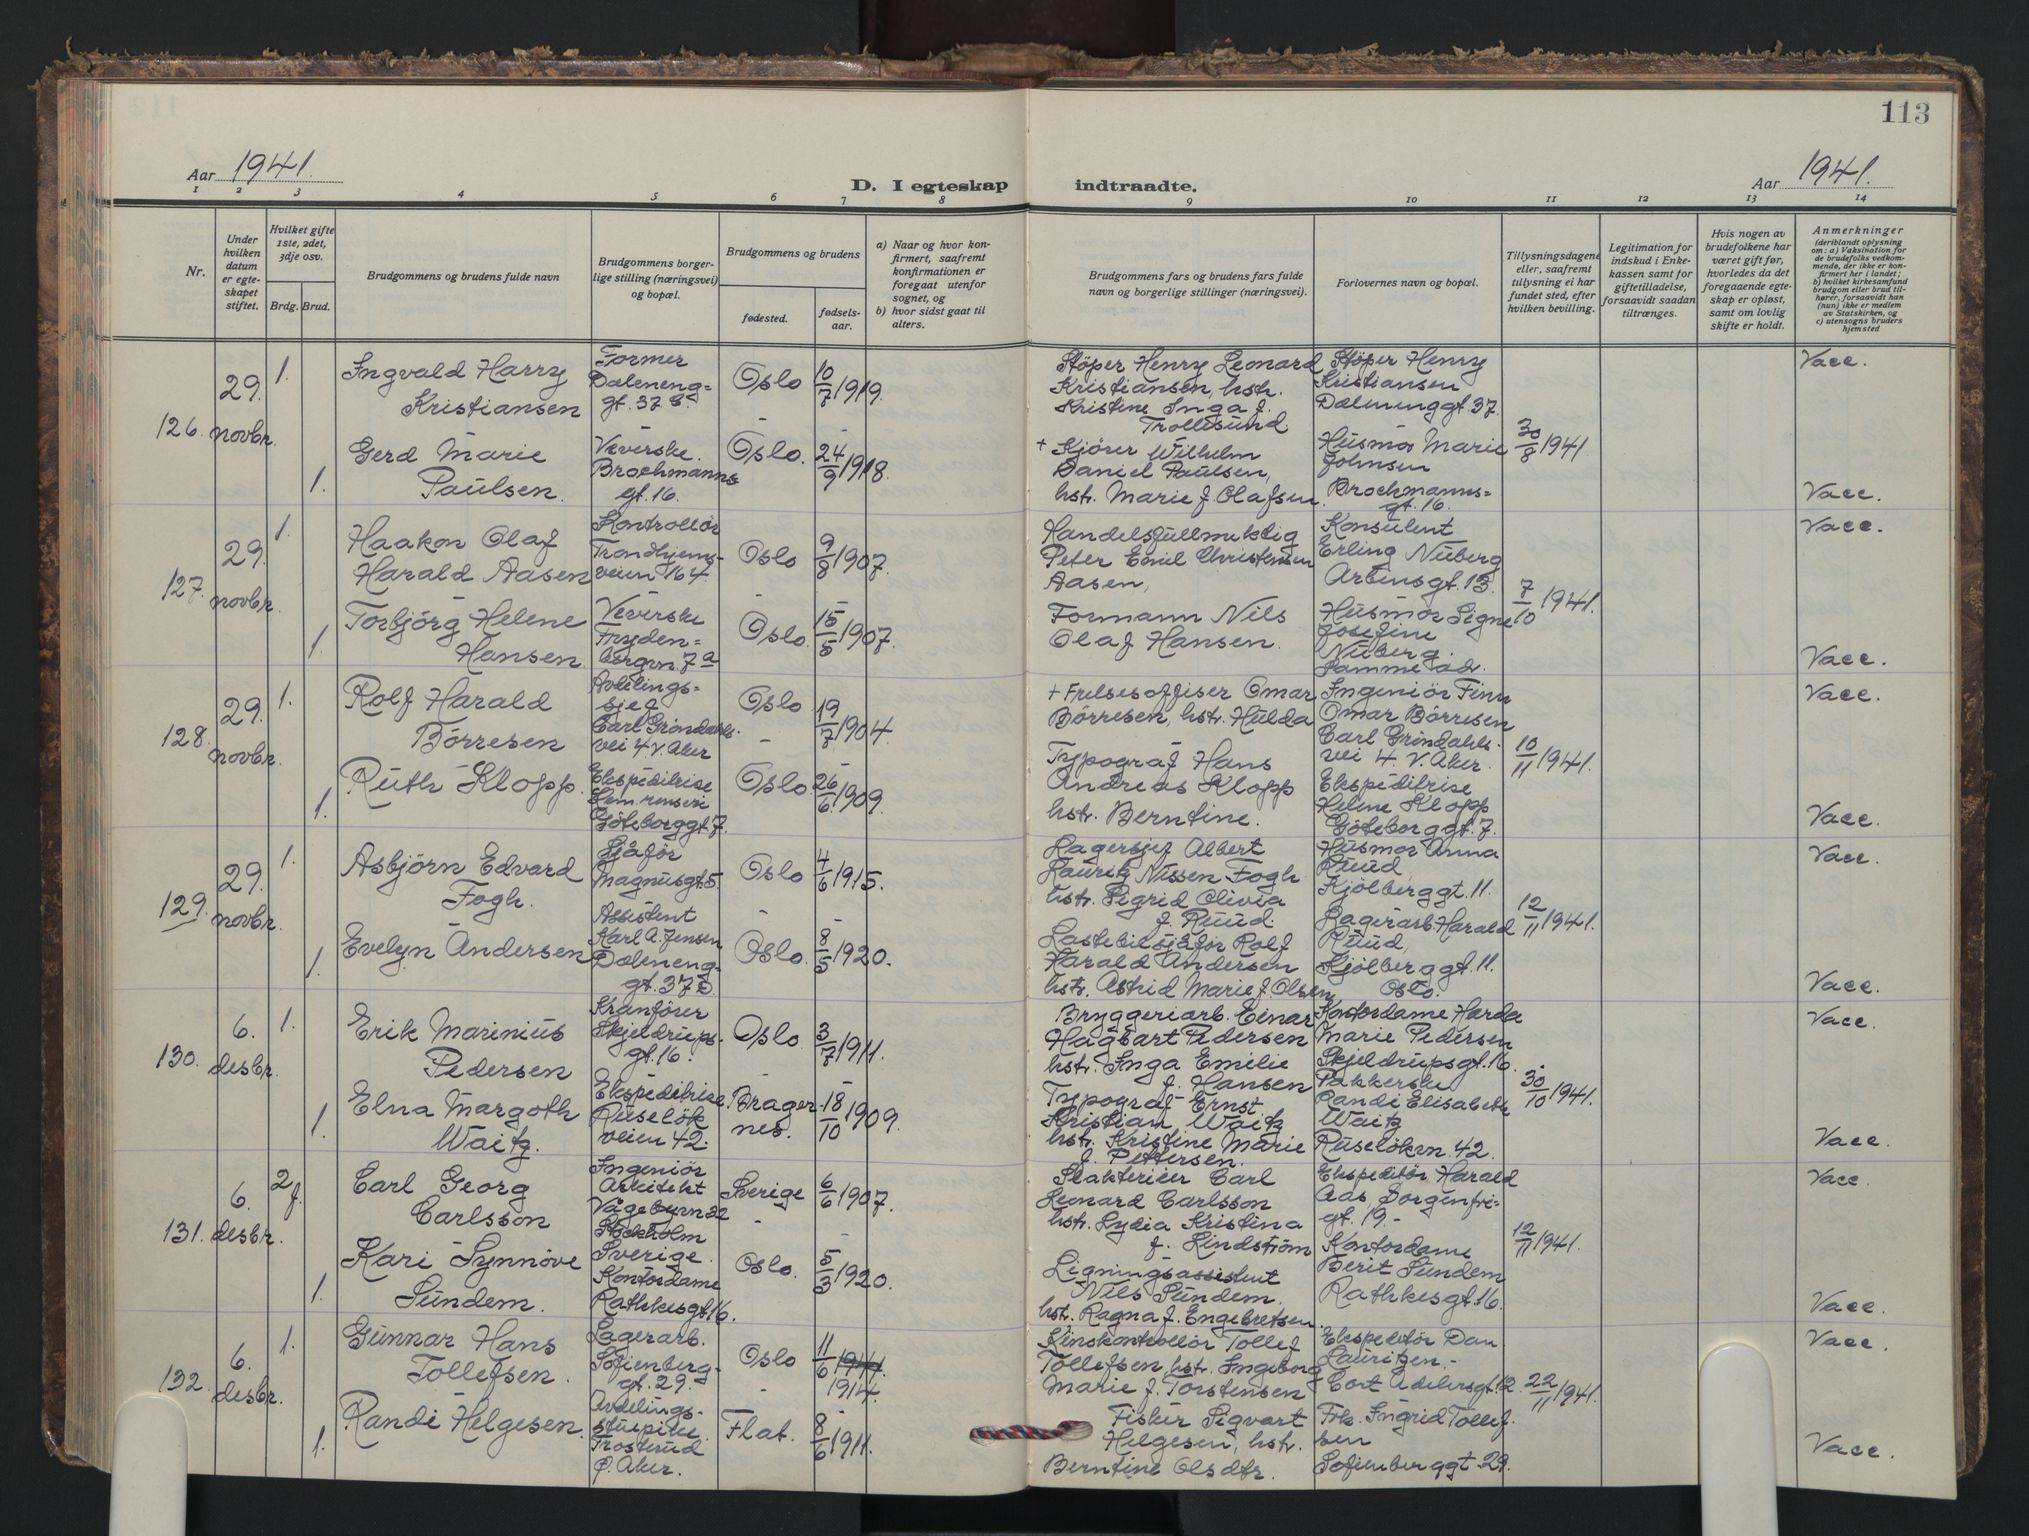 113
Aar 1941.
D. I egteskap indtraadte.
Aar 1941.
1 2 3 4 5 6 7 8 9 10 11 12 13 14
Nr.
Under hvilken datum er egteskapet stiftet.
Hvilket gifte 1ste, 2det, 3dje osv.
Brdg. Brud.
Brudgommens og brudens fulde navn
Brudgommens borgerlige stilling (næringsvei) og bopæl.
Brudgommens og brudens
fødested.
fødselsaar.
a) Naar og hvor konfirmert, saafremt konfirmationen er foregaat utenfor sognet, og
b) hvor sidst gaat til alters.
Brudgommens fars og brudens fars fulde navn og borgerlige stillinger (næringsvei).
Forlovernes navn og bopæl.
Tillysningsdagene eller, saafremt tillysning ei har fundet sted, efter hvilken bevilling.
Legitimation for indskud i Enkekassen samt for giftetilladelse, forsaavidt saadan tiltrænges.
Hvis nogen av brudefolkene har været gift før, hvorledes da det foregaaende egteskap er opløst, samt om lovlig skifte er holdt.
Anmerkninger
(deriblandt oplysning om: a) Vaksination for de brudefolks vedkommende, der ikke er konfirmert her i landet; b) hvilket kirkesamfund brudgom eller brud tilhører, forsaavidt han (hun) ikke er medlem av Statskirken, og c) utensogns bruders hjemsted
126.
29. novbr.
1.
Ingvald Harry
Kristiansen
Former
Dæleneng=
gt. 37 B.
Oslo
10/7 1919.
Støper Henry Leonard
Kristiansen, hstr.
Kristine Inga f.
Trollesund.
Støper Henry
Kristiansen
Dælenenggt. 37.
30/8 1941.
Vacc.
1.
Gerd Marie
Paulsen.
Veverske.
Brochmanns
gt. 16.
Oslo.
24/9 1918.
+ Kjører Wilhelm
Daniel Paulsen,
hstr. Marie f. Olafsen.
Husmor Marie
Johnsen
Brochmanns=
gt. 16.
Vacc.
127.
29. novbr.
1.
Haakon Olaf
Harald Aasen
Kontrollør
Trondhjems-
veien 164.
Oslo
9/8 1907.
Handelsfullmektig
Peter Emil Christensen
Aasen,
Konsulent
Erling Nuberg
Arbinsgt. 13.
7/10 1941.
Vacc.
1.
Torbjörg Helene
Hansen.
Veverske
Fryden=
bergvn. 7 a
Oslo.
15/5 1907.
Formann Nils
Olaf Hansen.
Husmor Signe
Josefine
Nuberg.
Samme adr.
Vacc.
128.
29. novbr.
1.
Rolf Harald
Börresen
Avdelings=
sjef
Carl Grøndahls.
vei 4 V. Aker
Oslo
19/7 1904.
+ Frelsesoffiser Omar
Börresen, hstr. Hulda
Ingeniør Finn
Omar Börresen
Carl Gröndahls.
vei 4. V. Aker.
10/11 1941.
Vacc.
1.
Ruth Klopp.
Ekspeditrise
Hem. renseri
Göteborggt. 7.
Oslo.
26/6 1909.
Typograf Hans
Andreas Klopp
hstr. Berntine.
Ekspeditrise
Helene Klopp
Göteborggt. 7.
Vacc.
129.
29. novbr.
1.
Asbjörn Edvard
Fogh.
Sjåför
Magnusgt. 5.
Oslo
4/6 1915.
Lagersjef Albert
Lauritz Nissen Fogh
hstr. Sigrid Olivia
f. Ruud.
Husmor Anna
Ruud,
Kjölberggt. 11.
12/11 1941.
Vacc.
1.
Evelyn Andersen
Assistent
Karl A. Jensen
Dæleneng-
gt. 37 D.
Oslo.
8/5 1920.
Lastebilsjåför Rolf
Harald Andersen
hstr. Astrid Marie f. Olsen,
Lagerarb. Harald
Ruud,
Kjölberggt. 11.
Oslo.
Vacc.
130.
6. desbr.
1.
Erik Marinius
Pedersen
Kranförer
Skjeldrups-
gt. 16.
Oslo
3/7 1911.
Bryggeriarb. Einar
Hagbart Pedersen
hstr. Inga Emilie
f. Hansen
Kontordame Harda
Marie Pedersen
Skjeldrupsgt. 16.
30/10 1941.
Vacc.
1.
Elna Margoth
Waitz.
Ekspeditrise.
Ruselök
veien 42.
Brager-
nes.
18/10 1909.
Typograf Ernst
Kristian Waitz
hstr. Kristine Marie
f. Pettersen.
Pakkerske
Randi Elisabeth
Waitz
Ruselökvn. 42.
Vacc.
131.
6. desbr.
2 f.
Carl Georg
Carlsson
Ingeniör
Arkitekt
Vågebyrn 22
Stockholm
Sverige.
Sverige
6/6 1907.
Slakterieier Carl
Leonard Carlsson
hstr. Lydia Kristina
f. Lindström
Ekspeditör Harald
Aas Sorgenfri-
gt. 19.-
12/11 1941.
Vacc.
1.
Kari Synnöve
Sundem.
Kontordame
Rathkesgt. 16.
Oslo.
5/3 1920.
Ligningsassistent
Nils Sundem.
hstr. Ragna f. Engebretsen.
Kontordame
Berit Sundem
Rathkesgt. 16.
Vacc.
132.
6. desbr.
1.
Gunnar Hans
Tollefsen.
Lagerarb.
Sofienberg-
gt. 29.
Oslo
11/6 1941
1914.
Kinokontrollör Tollef
Tollefsen, hstr. Ingeborg
Marie f. Torstensen
Ekspeditör Dan
Lauritzen.-
Cort Adelersgt. 12.
22/11 1941.
Vacc.
1.
Randi Helgesen.
Avdelings-
stuepike.
Trosterud
Ø. Aker.
Flat.
8/6 1911.
Fisker Sigvart
Helgesen, hstr.
Berntine Olsdtr.
Frk. Ingrid Tollef.
sen
Sofienberggt. 29.
Vacc.